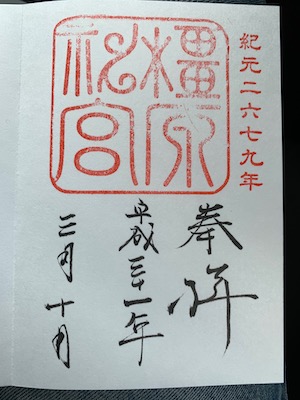 紀元二六七九年
橿原
神宮
奉拝
平成三十一年
三月十日